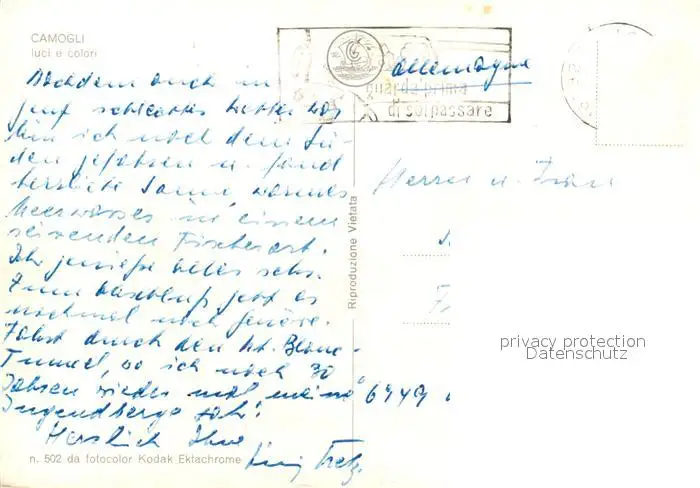 CAMOGLI
luci e colori
Nachdem auch in
Genf schlechtes Wetter war
bin ich nach dem Sü-
den gefahren u. fand
herrliche Sonne, warmes
Meerwasser in einem
reizenden Fischerort.
Ich genieße alles sehr.
Zum Abschluß geht es
nochmal nach Genève.
Fahrt durch den Mt. Blanc-
Tunnel, wo ich nach 30
Jahren wieder mal meine
Jugendberge sah!
Herzlich Ihre
n. 502 da fotocolor Kodak Ektachrome
Riproduzione Vietata
Allemagne
guarda prima
di sorpassare
Herrn u. Frau
6949
privacy protection
Datenschutz